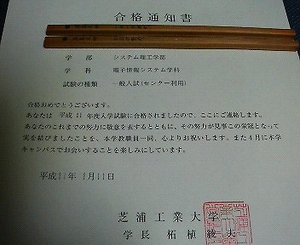 合格通知書
学部 システム理工学部
学科 電子情報システム学科
試験の種類 一般入試(センター利用)
合格おめでとうございます。
あなたは 平成 11 年度入学試験に合格されましたので、ここにご連絡します。
あなたのこれまでの努力に敬意を表するとともに、その努力が見事この栄冠となって
実を結びましたことを、本学教職員一同、心よりお祝いします。また4月に本学
キャンパスでお会いすることを楽しみにしています。
平成11年 2月11日
芝浦工業大学
学長 柘植綾夫